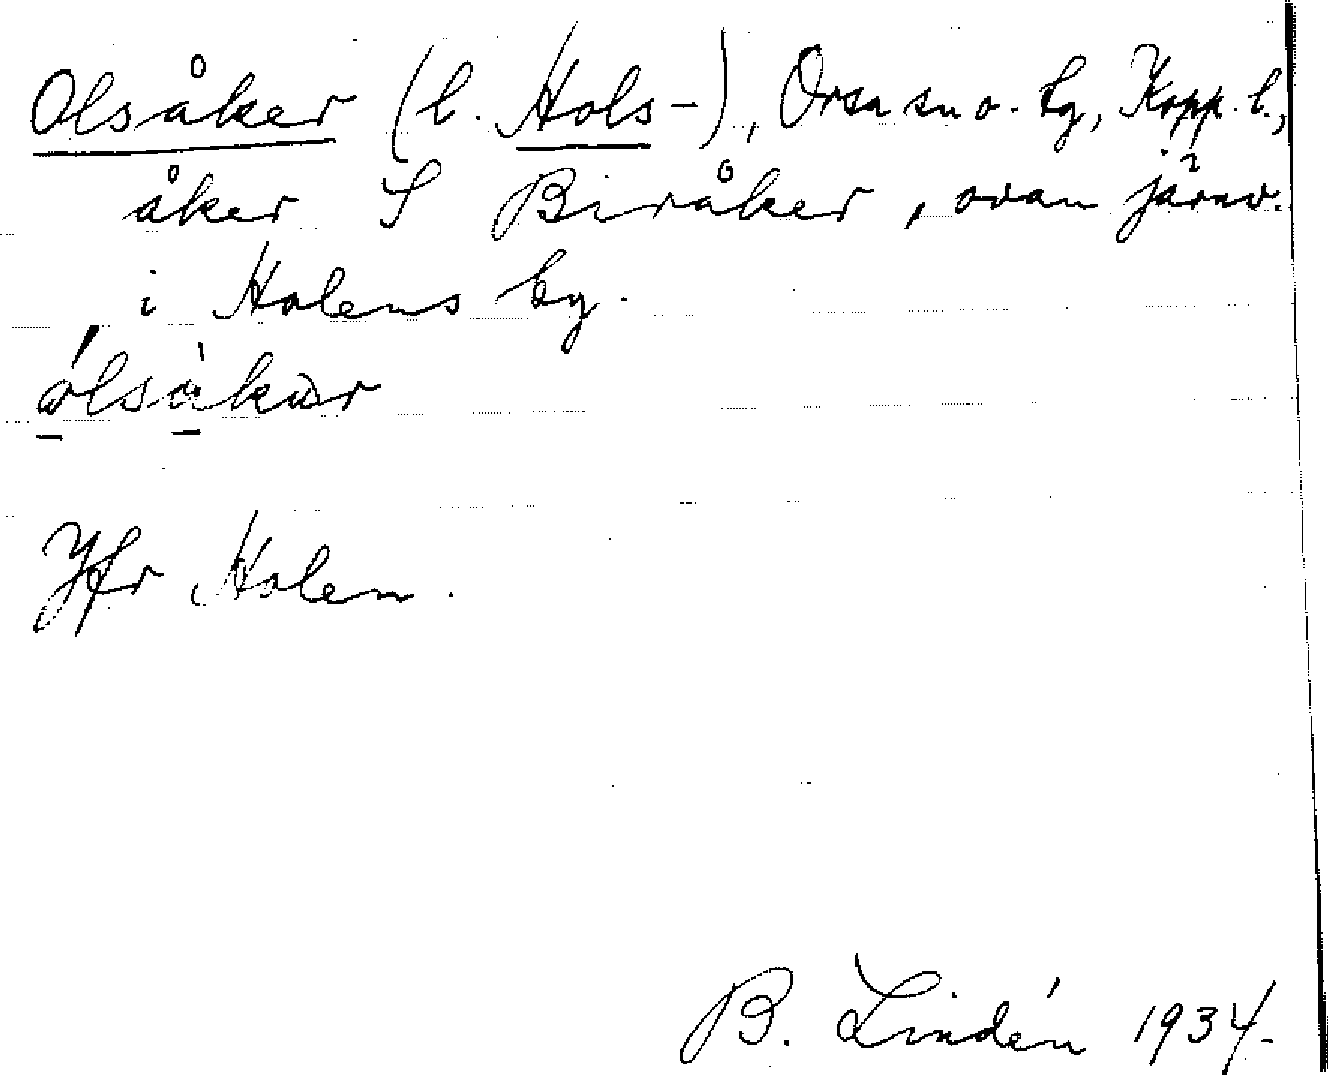 Olsåker (l. Hols-), Orsa sn o. tg, Kopp. l.,
åker S Biråker, ovan järnv.
i Holens by.
ólsàkär
Jfr Holen.
B. Lindén 1934.